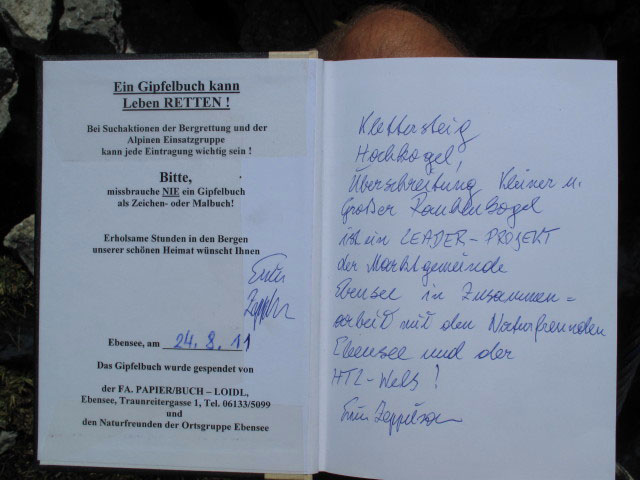 Ein Gipfelbuch kann
Leben RETTEN !
Bei Suchaktionen der Bergrettung und der
Alpinen Einsatzgruppe
kann jede Eintragung wichtig sein !
Bitte,
missbrauche NIE ein Gipfelbuch
als Zeichen- oder Malbuch!
Erholsame Stunden in den Bergen
unserer schönen Heimat wünscht Ihnen
Ebensee, am 24. 8. 11
Das Gipfelbuch wurde gespendet von
der FA. PAPIER/BUCH – LOIDL,
Ebensee, Traunreitergasse 1, Tel. 06133/5099
und
den Naturfreunden der Ortsgruppe Ebensee
Klettersteig
Hochkogel,
Überschreitung Kleiner u.
Großer Rauhenkogel
ist ein LEADER - PROJEKT
der Marktgemeinde
Ebensee in Zusammen =
arbeit mit den Naturfreunden
Ebensee und der
HTL - Wels !